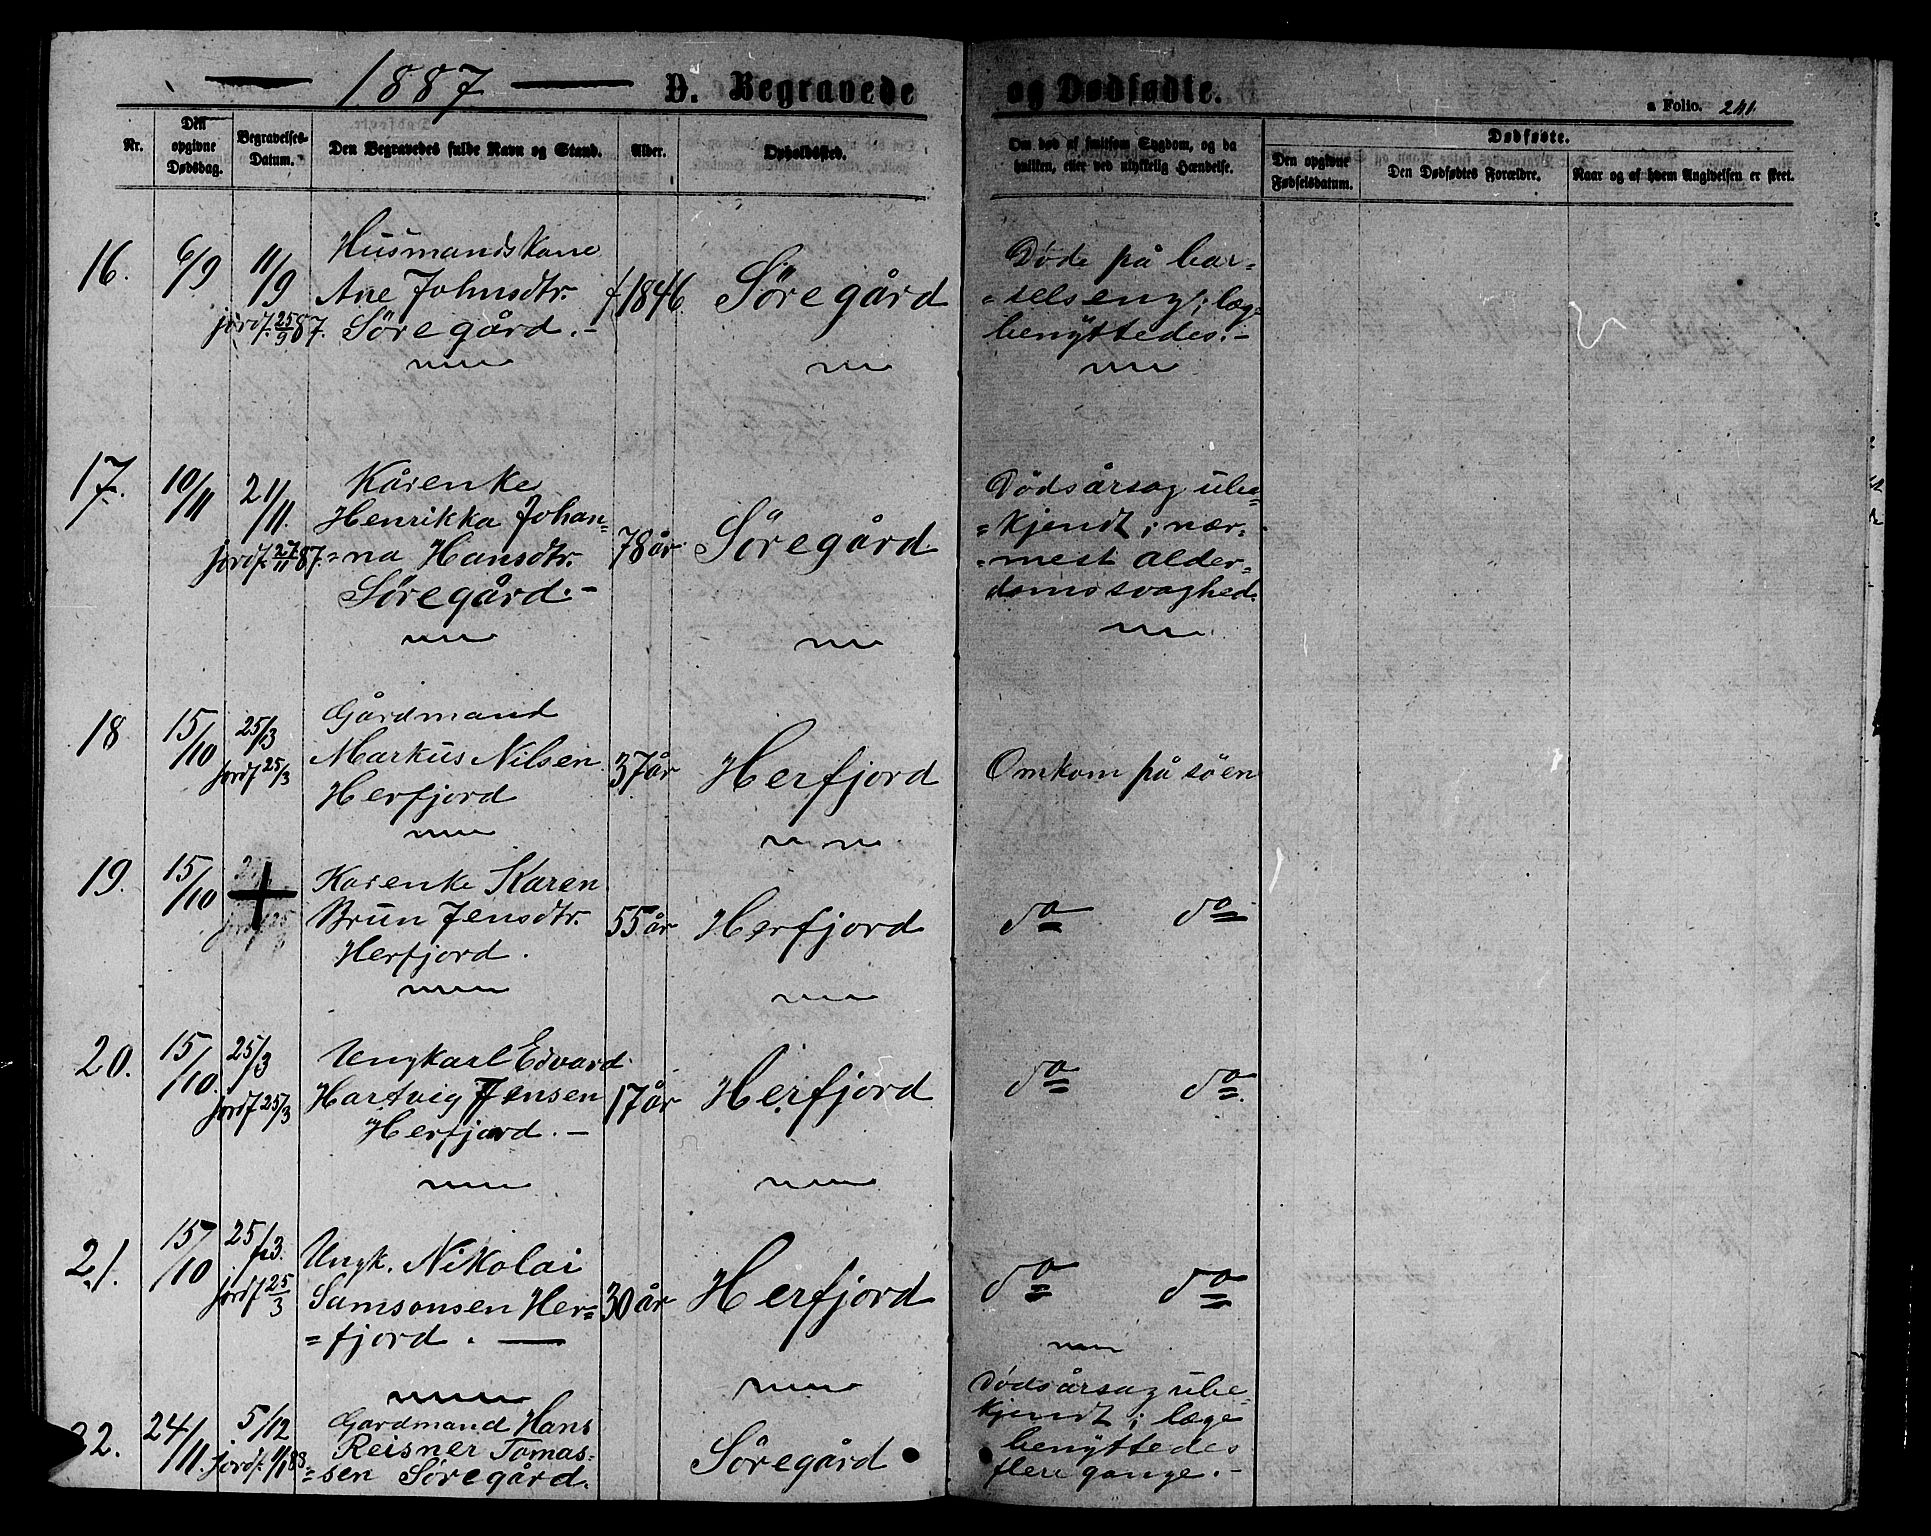 1887 D. Begravede og Dødfødte.
a Folio. 241.
Nr.
Den opgivne Dødsdag.
Begravelses-Datum.
Den Begravedes fulde Navn og Stand.
Alder.
Opholdssted.
Om død af smitsom Sygdom, og da
hvilken, eller ved ulykkelig Hændelse.
Dødfødte.
Den opgivne Fødselsdatum.
Den Dødfødtes Forældre.
Naar og af hvem Angivelsen er skeet.
16. 6/9 11/9
jordf. 25/9 87.
Husmandskone
Ane Johnsdtr.
Søregård.-
f 1846. Søregård
Døde på bar=
=selseng; læge
benyttedes.-
17. 10/11 21/11.
jordf. 27/11 87.
Kårenke
Henrikka Johan=
=na Hansdtr.
Søregård.-
78 år Søregård.
Dødsårsag ube=
=kjendt; nær=
=mest alder=
domssvaghed.
18 15/10 25/3
jordf 25/3
Gårdmand
Markus Nilsen
Herfjord
37 år Herfjord
Omkom på søen
19. 15/10
Karenke Karen
Brun Jensdtr.
Herfjord.
55 år Herfjord
do do
20. 15/10. 25/3
jordf 25/3
Ungkarl Edvard
Hartvig Jensen
Herfjord.-
17 år Herfjord
do do.
21. 15/10 25/3.
jordf 25/3
Ungk. Nikolai
Samsonsen Her=
=fjord.
30 år Herfjord
do do
22. 24/11. 5/12
jordf. 1/1 88.
Gardmand Hans
Reisner Tomas=
=sen Søregård.
Søregård
Dødsårsag ube=
kjendt; læge
benyttedes
flere gange.-